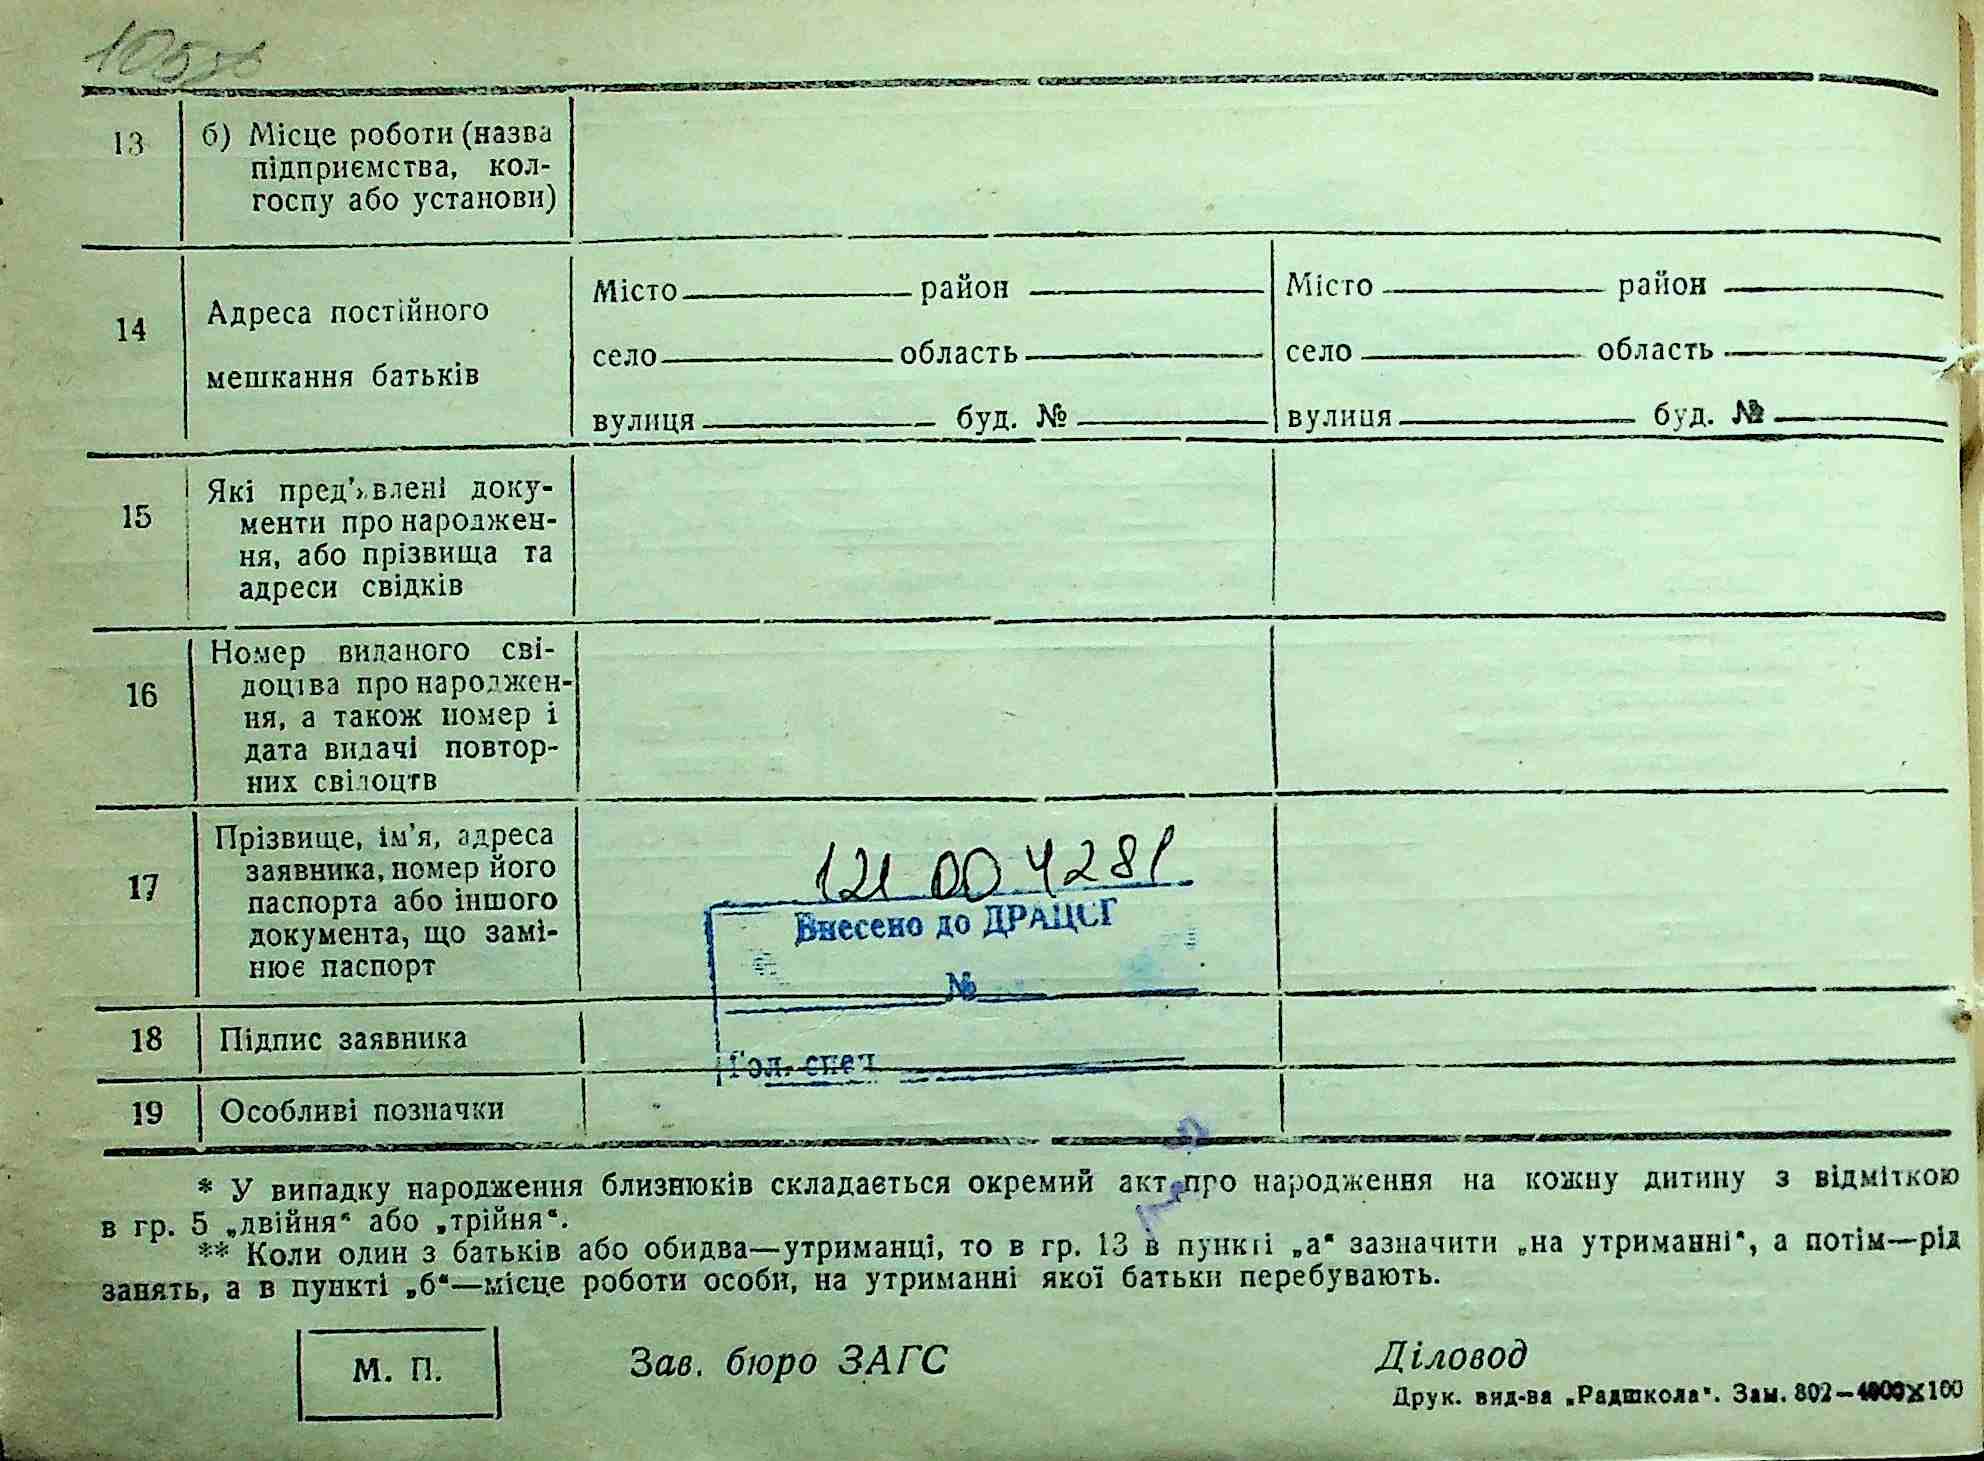 13
б) Місце роботи (назва
підприємства, кол-
госпу або установи)
14
Адреса постійного
мешкання батьків
Місто район
село область
вулиця буд. №
Місто район
село область
вулиця буд. №
15
Які пред'явлені доку-
менти про народжен-
ня, або прізвища та
адреси свідків
16
Номер виданого сві-
доцтва про народжен-
ня, а також номер і
дата видачі повтор-
них свідоцтв
17
Прізвище, ім'я, адреса
заявника, номер його
паспорта або іншого
документа, що замі-
нює паспорт
121 00 4281
Внесено до ДРАЦСГ
№
Гол. спец
18
Підпис заявника
19
Особливі позначки
* У випадку народження близнюків складається окремий акт про народження на кожну дитину з відміткою
в гр. 5 „двійня“ або „трійня“.
** Коли один з батьків або обидва—утриманці, то в гр. 13 в пункті „а“ зазначити „на утриманні“, а потім—рід
занять, а в пункті „б“—місце роботи особи, на утриманні якої батьки перебувають.
М. П.
Зав. бюро ЗАГС
Діловод
Друк. вид-ва „Радшкола“. Зам. 802—4000X100